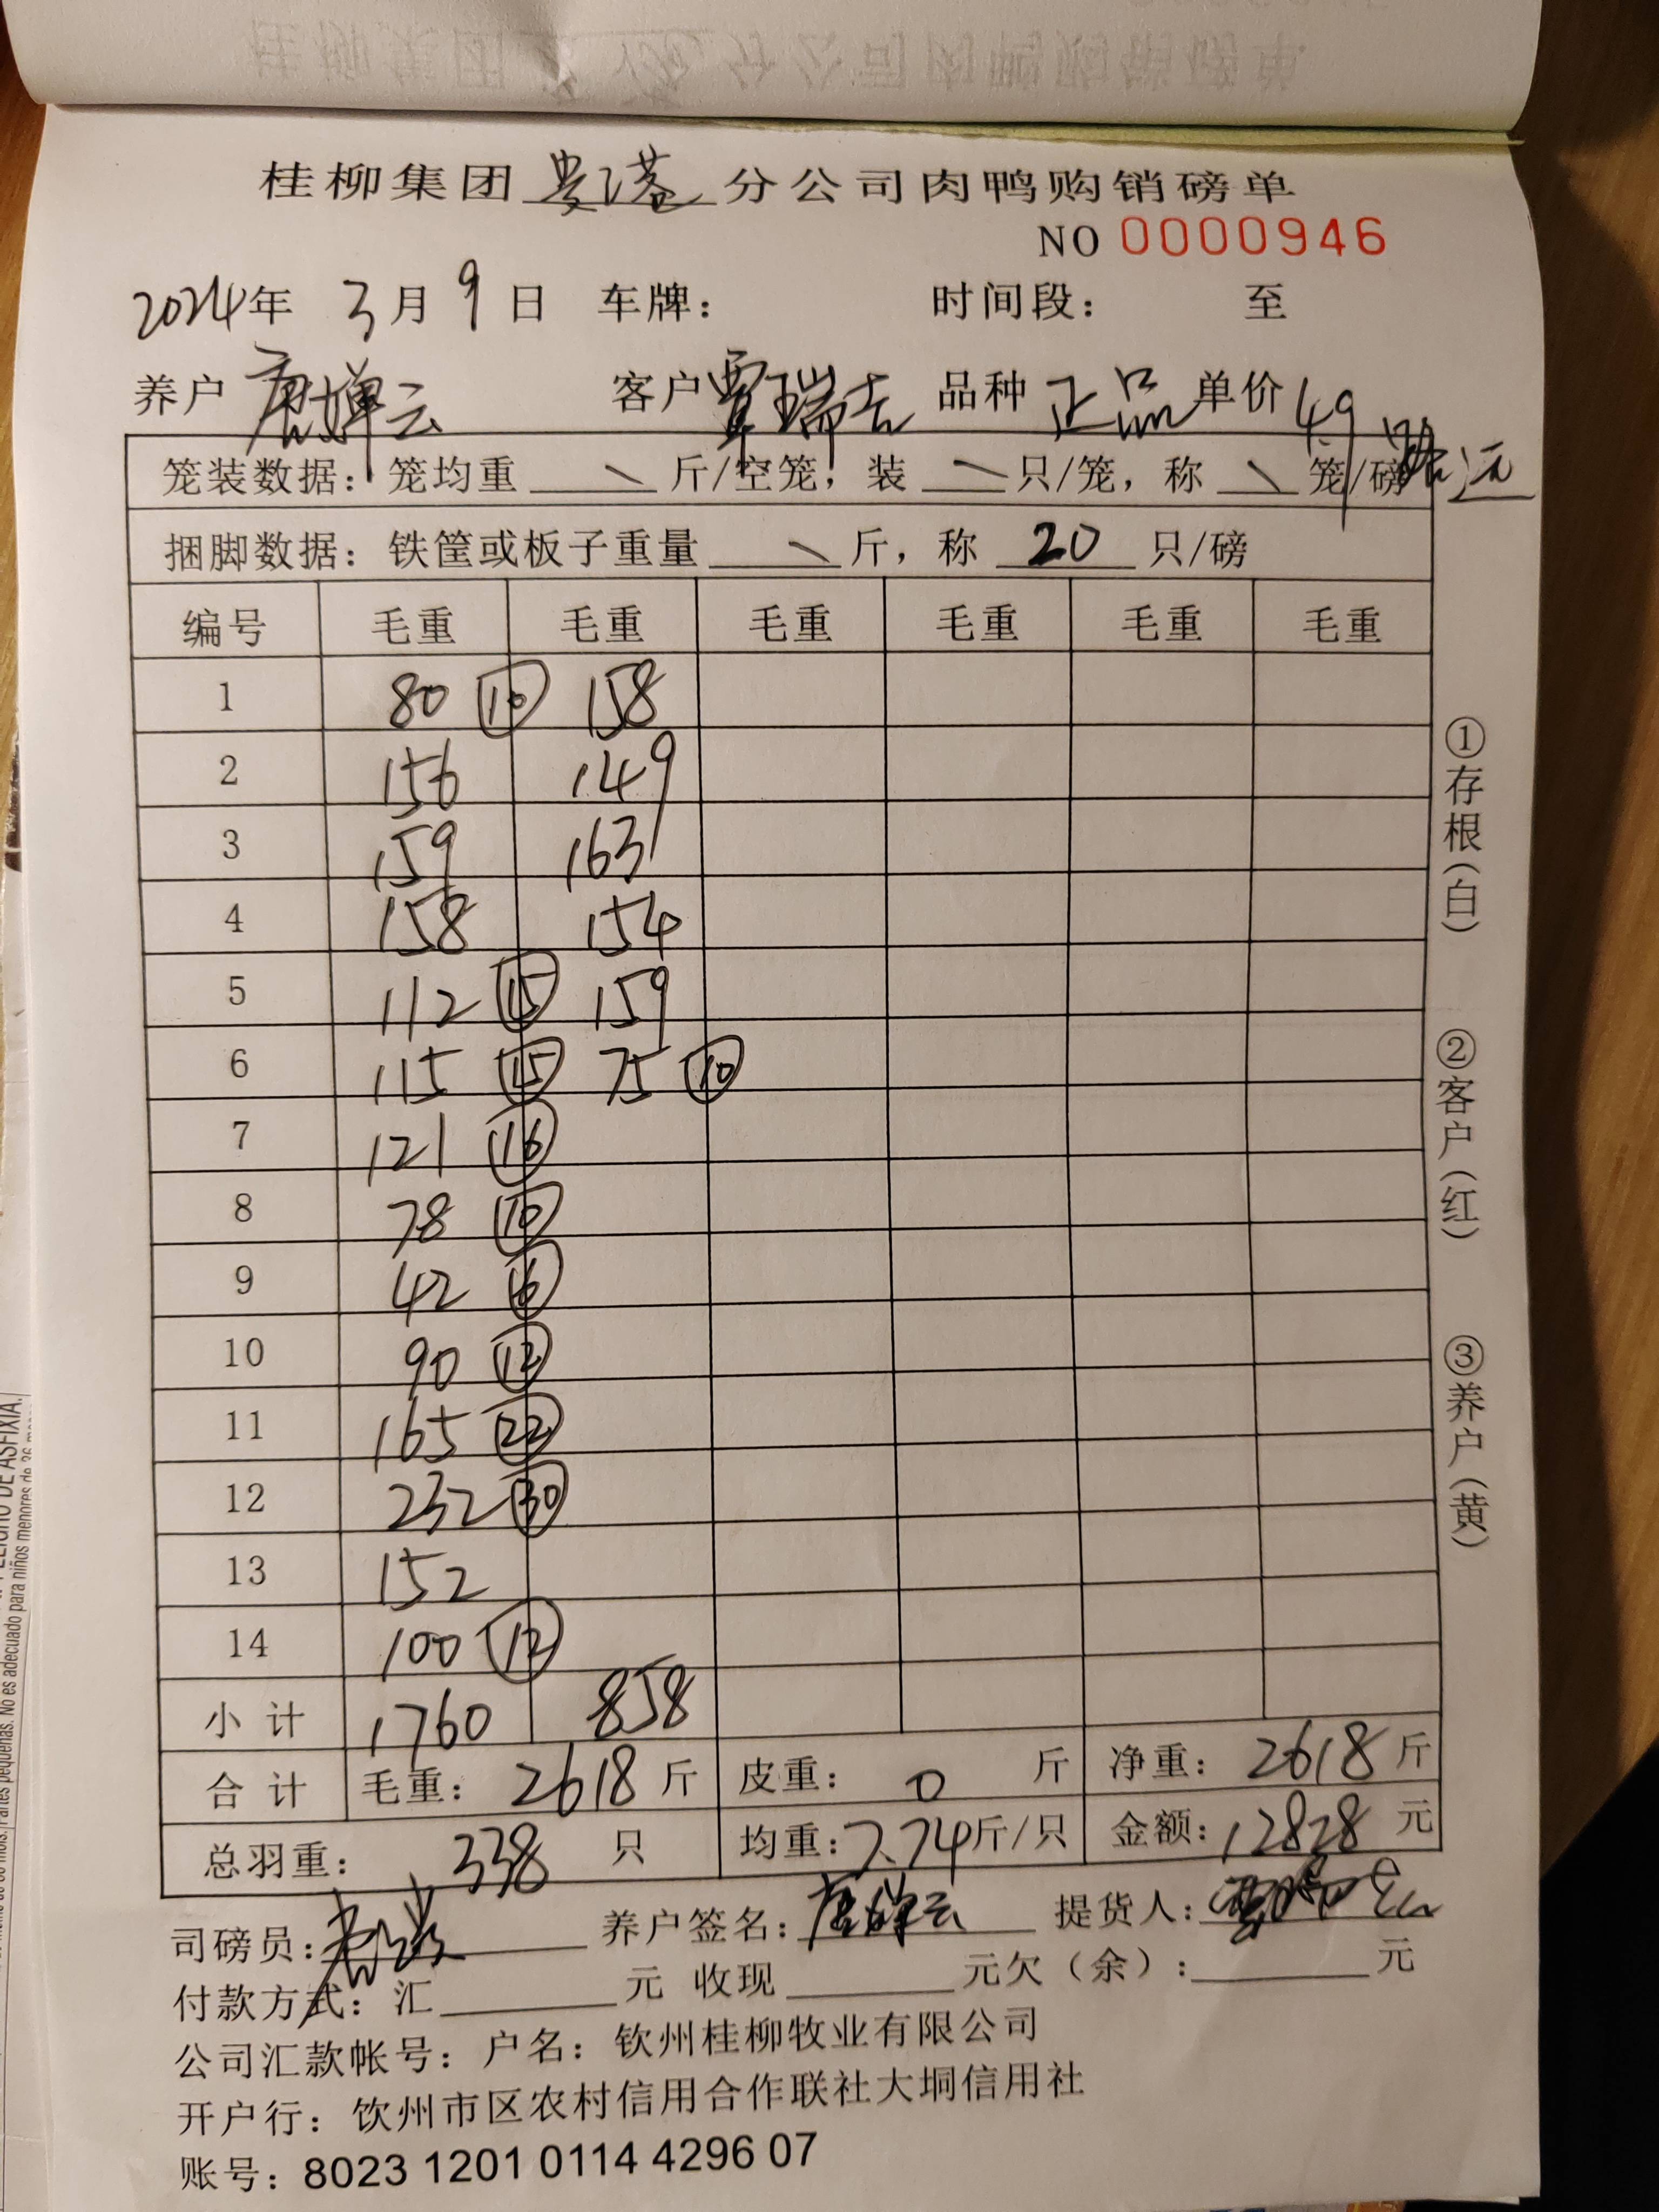 桂柳集团贵港分公司肉鸭购销磅单
NO 0000946
2024年 3月 9日 车牌： 时间段： 至
养户 唐婵云 客户 覃瑞吉 品种 正品 单价 4.9
笼装数据：笼均重 \ 斤/空笼，装 \ 只/笼，称 \ 笼/磅
捆脚数据：铁筐或板子重量 \ 斤，称 20 只/磅
编号 毛重 毛重 毛重 毛重 毛重 毛重
1 80 ⑩ 158
2 156 149
3 159 163
4 158 154
5 112 ⑮ 159
6 115 ⑮ 75 ⑩
7 121 ⑯
8 78 ⑩
9 42 ⑥
10 90 ⑫
11 165 ㉒
12 232 ㉚
13 152
14 100 ⑫
小计 1760 858
合计 毛重：2618斤 皮重：0 斤 净重：2618斤
总羽重：338 只 均重：7.74斤/只 金额：12828 元
司磅员： 养户签名：唐婵云 提货人：
付款方式：汇 元 收现 元欠（余）： 元
公司汇款帐号：户名：钦州桂柳牧业有限公司
开户行：饮州市区农村信用合作联社大垌信用社
账号：8023 1201 0114 4296 07
①存根（白）
②客户（红）
③养户（黄）